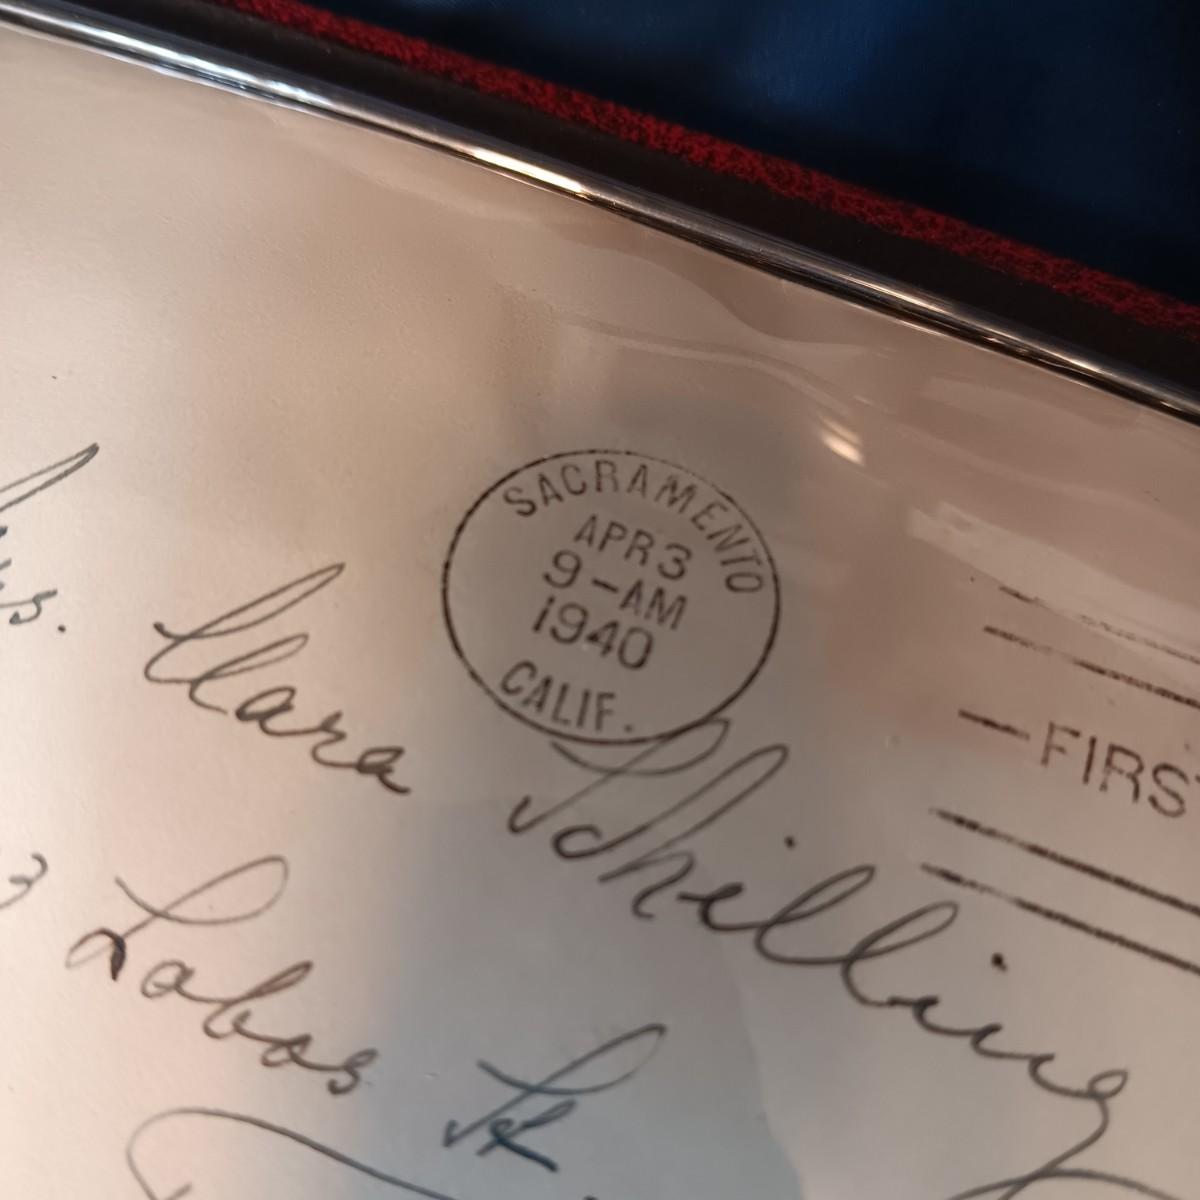 SACRAMENTO
APR 3
9-AM
1940
CALIF.
FIRST
Mrs. Clara Schilling
3 Lobos St